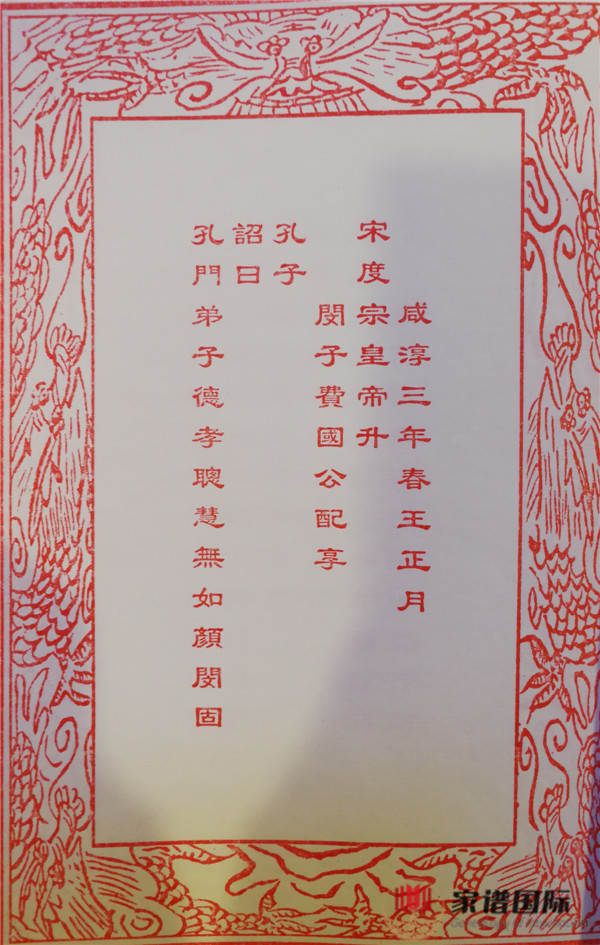 咸淳三年春王正月
宋度宗皇帝升
閔子費國公配享
孔子
詔曰
孔門弟子德孝聰慧無如顏閔固
家谱国际